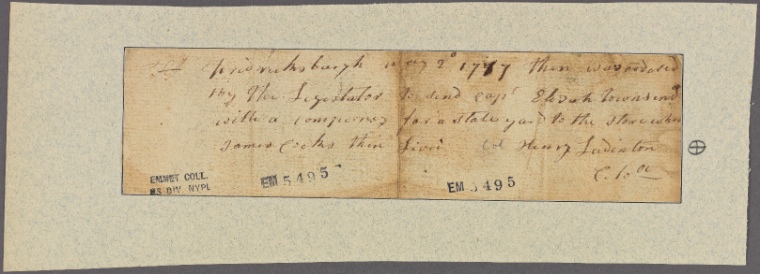 Fridricksburgh may 2d 1777 then was ordered
by the Legistator to send Capt Elizah Townsend
with a compeney for a state gard to the store when
James Cocks then Livd Col Henry Ludinton
EMMET COLL.
MS DIV. NYPL
EM 5495
EM 5495